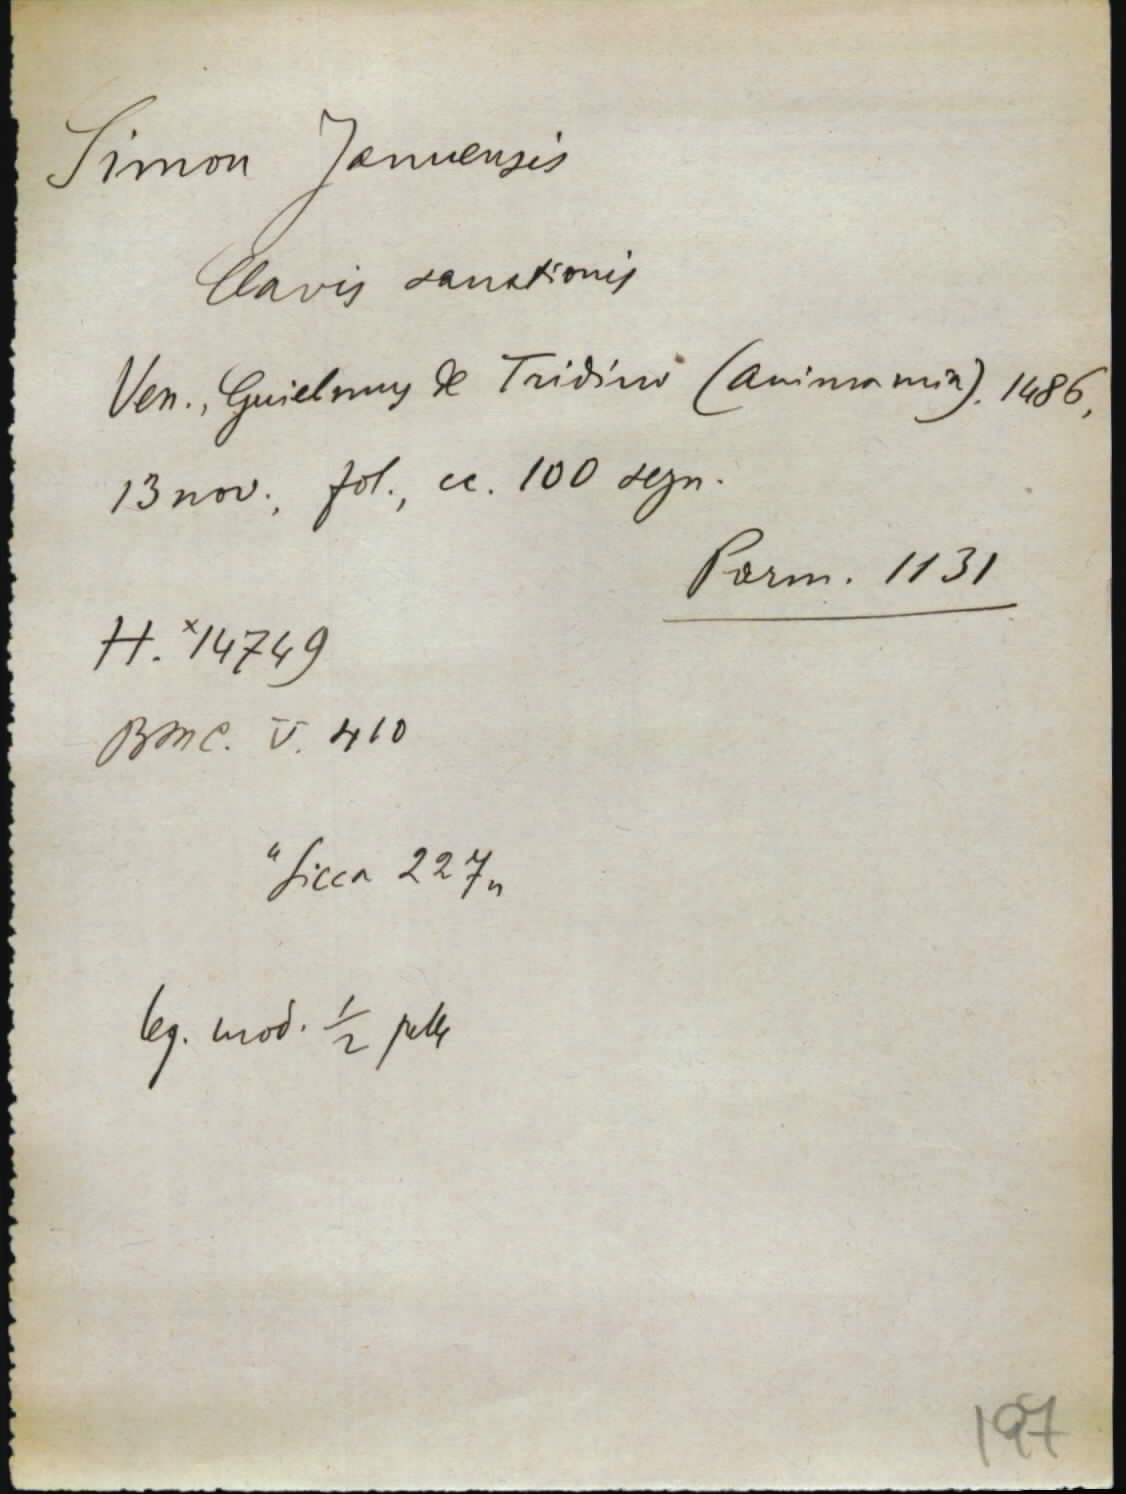 Simon Januensis
Clavis sanationis
Ven., Guielmus de Tridino (Animamia). 1486,
13 nov., fol., cc. 100 segn.
Parm. 1131
H. x14749
BMC. V. 410
"Sicca 227"
leg. mod. 1/2 pelle
197